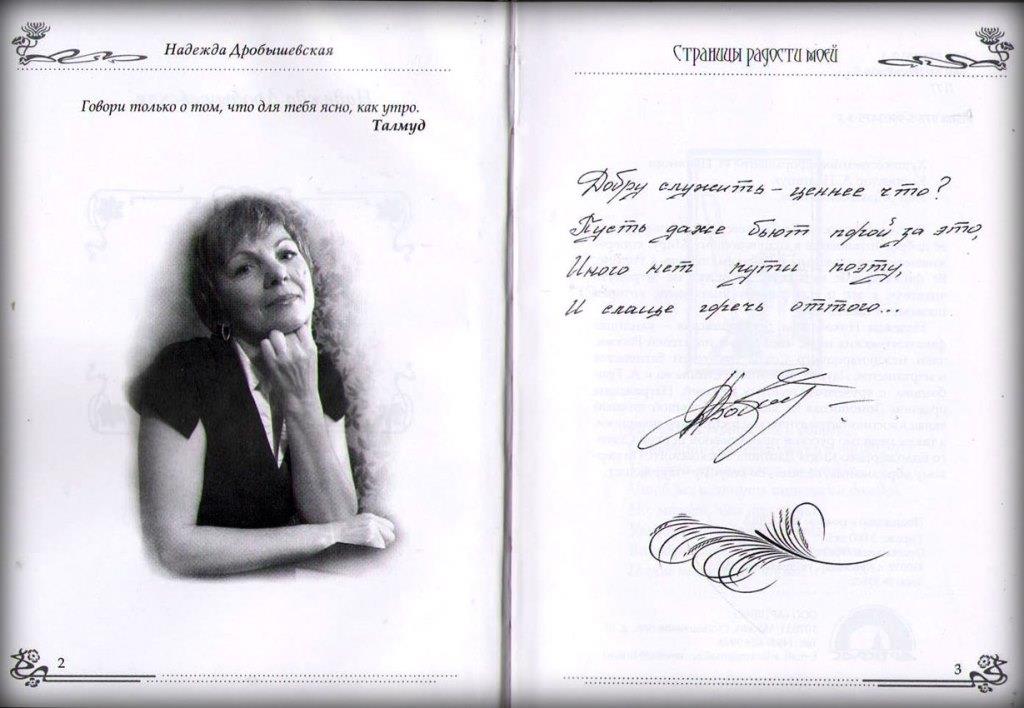 Надежда Дробышевская
Говори только о том, что для тебя ясно, как утро.
Талмуд
2
Страницы радости моей
Добру служить – ценнее что?
Пусть даже бьют порой за это,
Иного нет пути поэту,
И слаще горечь оттого...
3